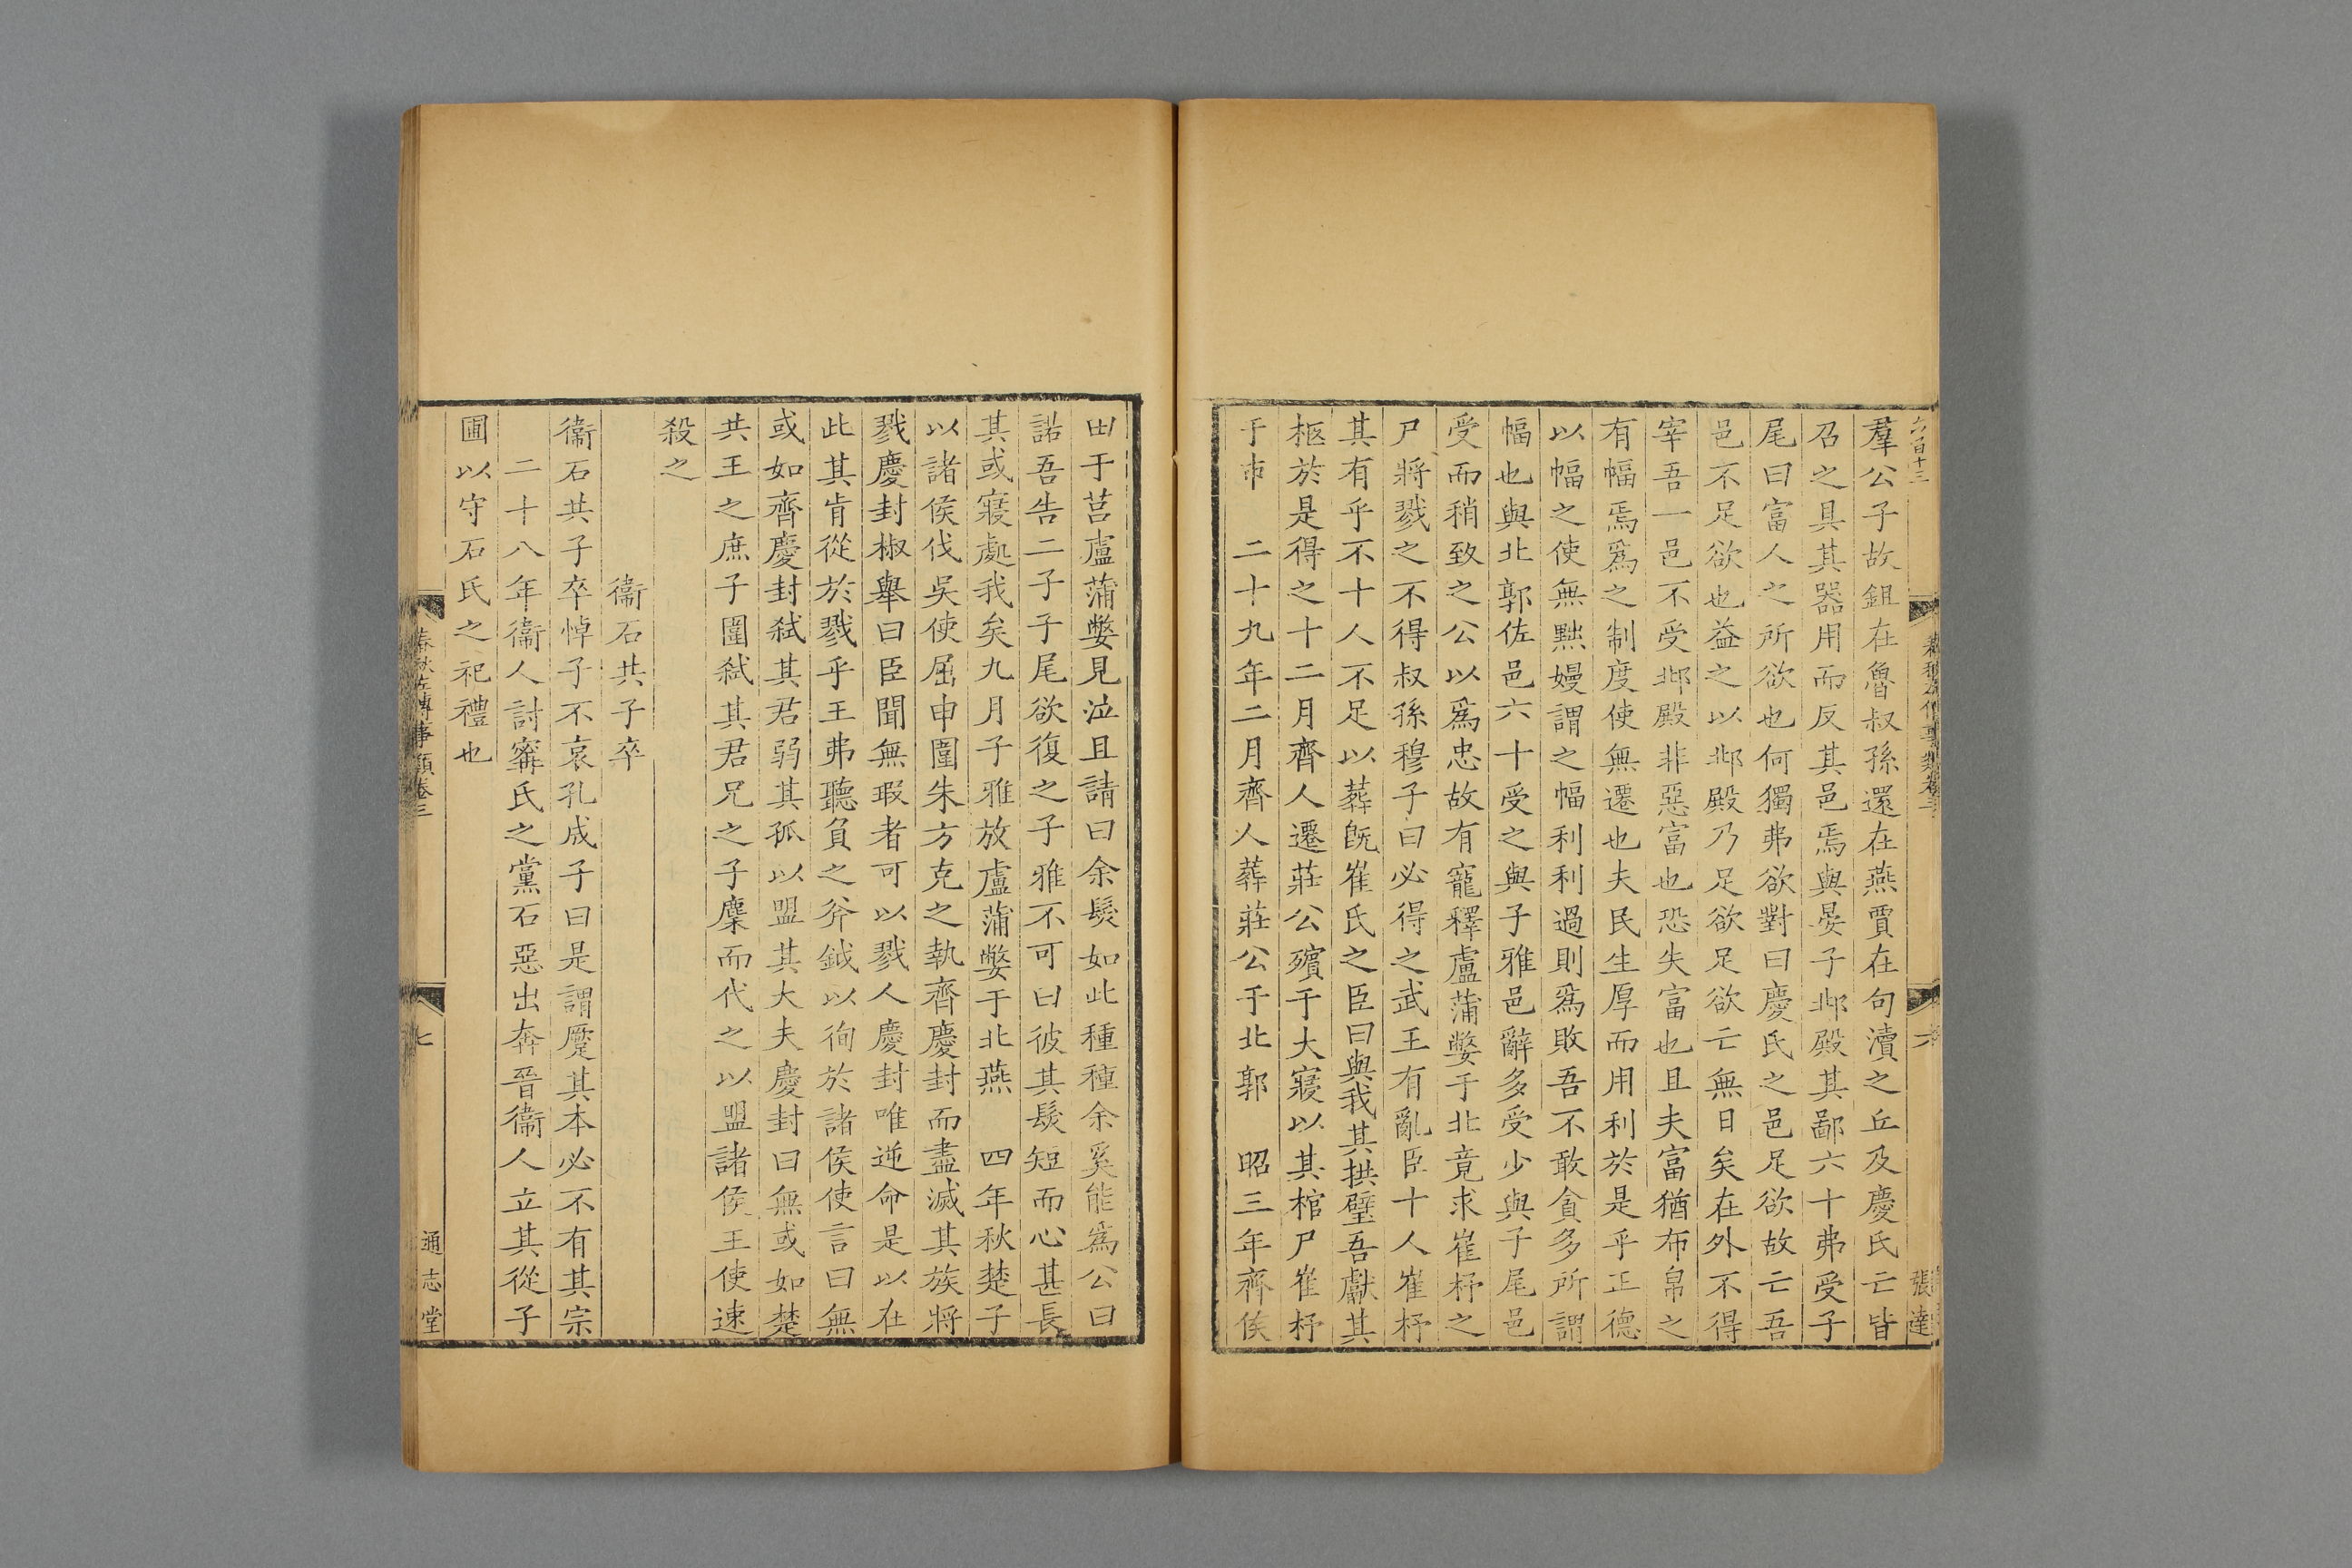 六百十三
張達
羣公子故鉏在魯叔孫還在燕賈在句瀆之丘及慶氏亡皆
召之具其器用而反其邑焉與晏子邶殿其鄙六十弗受子
尾曰富人之所欲也何獨弗欲對曰慶氏之邑足欲故亡吾
邑不足欲也益之以邶殿乃足欲足欲亡無日矣在外不得
宰吾一邑不受邶殿非惡富也恐失富也且夫富猶布帛之
有幅焉爲之制度使無遷也夫民生厚而用利於是乎正德
以幅之使無黜嫚謂之幅利利過則爲敗吾不敢貪多所謂
幅也與北郭佐邑六十受之與子雅邑辭多受少與子尾邑
受而稍致之公以爲忠故有寵釋盧蒲嫳于北竟求崔杼之
尸將戮之不得叔孫穆子曰必得之武王有亂臣十人崔杼
其有乎不十人不足以葬旣崔氏之臣曰與我其拱璧吾獻其
柩於是得之十二月齊人遷莊公殯于大寢以其棺尸崔杼
于市　二十九年二月齊人葬莊公于北郭　昭三年齊侯
田于莒盧蒲嫳見泣且請曰余髮如此種種余奚能爲公曰
諾吾告二子子尾欲復之子雅不可曰彼其髮短而心甚長
其或寢處我矣九月子雅放盧蒲嫳于北燕　四年秋楚子
以諸侯伐吳使屈申圍朱方克之執齊慶封而盡滅其族將
戮慶封椒舉曰臣聞無瑕者可以戮人慶封唯逆命是以在
此其肯從於戮乎王弗聽負之斧鉞以徇於諸侯使言曰無
或如齊慶封弒其君弱其孤以盟其大夫慶封曰無或如楚
共王之庶子圍弒其君兄之子麇而代之以盟諸侯王使速
殺之
衞石共子卒
衞石共子卒悼子不哀孔成子曰是謂蹷其本必不有其宗
二十八年衞人討甯氏之黨石惡出奔晉衞人立其從子
圃以守石氏之祀禮也
春秋左傳事類卷三
七
通志堂